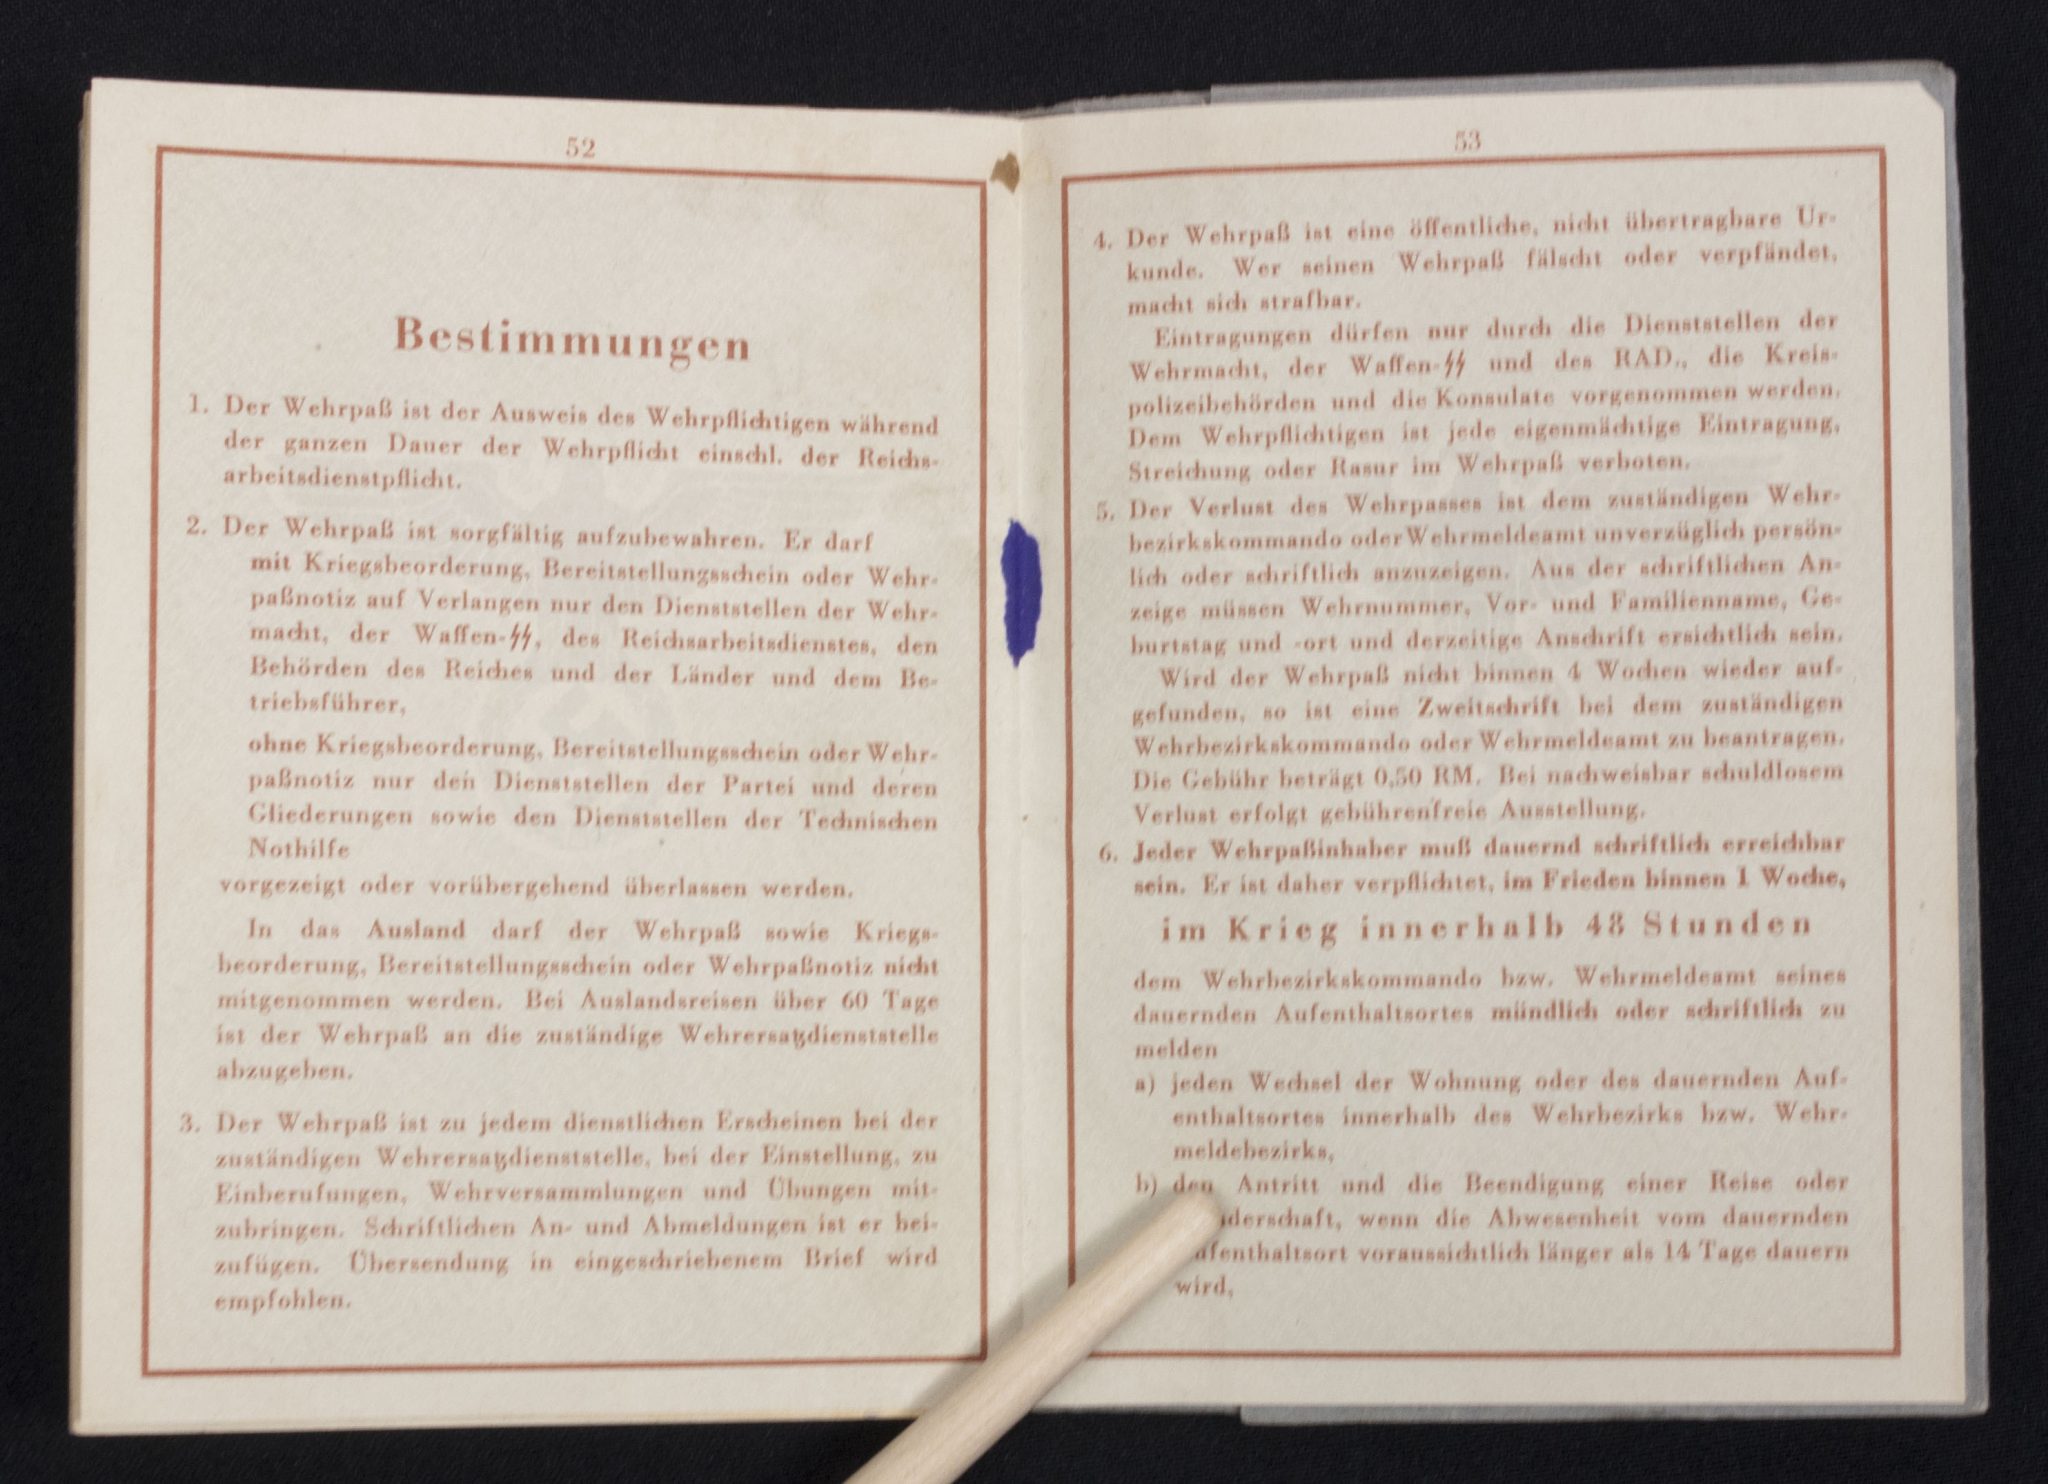 52
Bestimmungen
1. Der Wehrpaß ist der Ausweis des Wehrpflichtigen während
der ganzen Dauer der Wehrpflicht einschl. der Reichs-
arbeitsdienstpflicht.
2. Der Wehrpaß ist sorgfältig aufzubewahren. Er darf
mit Kriegsbeorderung, Bereitstellungsschein oder Wehr-
paßnotiz auf Verlangen nur den Dienststellen der Wehr-
macht, der Waffen-ϟϟ, des Reichsarbeitsdienstes, den
Behörden des Reiches und der Länder und dem Be-
triebsführer,
ohne Kriegsbeorderung, Bereitstellungsschein oder Wehr-
paßnotiz nur den Dienststellen der Partei und deren
Gliederungen sowie den Dienststellen der Technischen
Nothilfe
vorgezeigt oder vorübergehend überlassen werden.
In das Ausland darf der Wehrpaß sowie Kriegs-
beorderung, Bereitstellungsschein oder Wehrpaßnotiz nicht
mitgenommen werden. Bei Auslandsreisen über 60 Tage
ist der Wehrpaß an die zuständige Wehrersatzdienststelle
abzugeben.
3. Der Wehrpaß ist zu jedem dienstlichen Erscheinen bei der
zuständigen Wehrersatzdienststelle, bei der Einstellung, zu
Einberufungen, Wehrversammlungen und Übungen mit-
zubringen. Schriftlichen An- und Abmeldungen ist er bei-
zufügen. Übersendung in eingeschriebenem Brief wird
empfohlen.
53
4. Der Wehrpaß ist eine öffentliche, nicht übertragbare Ur-
kunde. Wer seinen Wehrpaß fälscht oder verpfändet,
macht sich strafbar.
Eintragungen dürfen nur durch die Dienststellen der
Wehrmacht, der Waffen-ϟϟ und des RAD., die Kreis-
polizeibehörden und die Konsulate vorgenommen werden.
Dem Wehrpflichtigen ist jede eigenmächtige Eintragung,
Streichung oder Rasur im Wehrpaß verboten.
5. Der Verlust des Wehrpasses ist dem zuständigen Wehr-
bezirkskommando oder Wehrmeldeamt unverzüglich persön-
lich oder schriftlich anzuzeigen. Aus der schriftlichen An-
zeige müssen Wehrnummer, Vor- und Familienname, Ge-
burtstag und -ort und derzeitige Anschrift ersichtlich sein.
Wird der Wehrpaß nicht binnen 4 Wochen wieder auf-
gefunden, so ist eine Zweitschrift bei dem zuständigen
Wehrbezirkskommando oder Wehrmeldeamt zu beantragen.
Die Gebühr beträgt 0,50 RM. Bei nachweisbar schuldlosem
Verlust erfolgt gebührenfreie Ausstellung.
6. Jeder Wehrpaßinhaber muß dauernd schriftlich erreichbar
sein. Er ist daher verpflichtet, im Frieden binnen 1 Woche,
im Krieg innerhalb 48 Stunden
dem Wehrbezirkskommando bzw. Wehrmeldeamt seines
dauernden Aufenthaltsortes mündlich oder schriftlich zu
melden
a) jeden Wechsel der Wohnung oder des dauernden Auf-
enthaltsortes innerhalb des Wehrbezirks bzw. Wehr-
meldebezirks,
b) den Antritt und die Beendigung einer Reise oder
derschaft, wenn die Abwesenheit vom dauernden
ufenthaltsort voraussichtlich länger als 14 Tage dauern
wird,